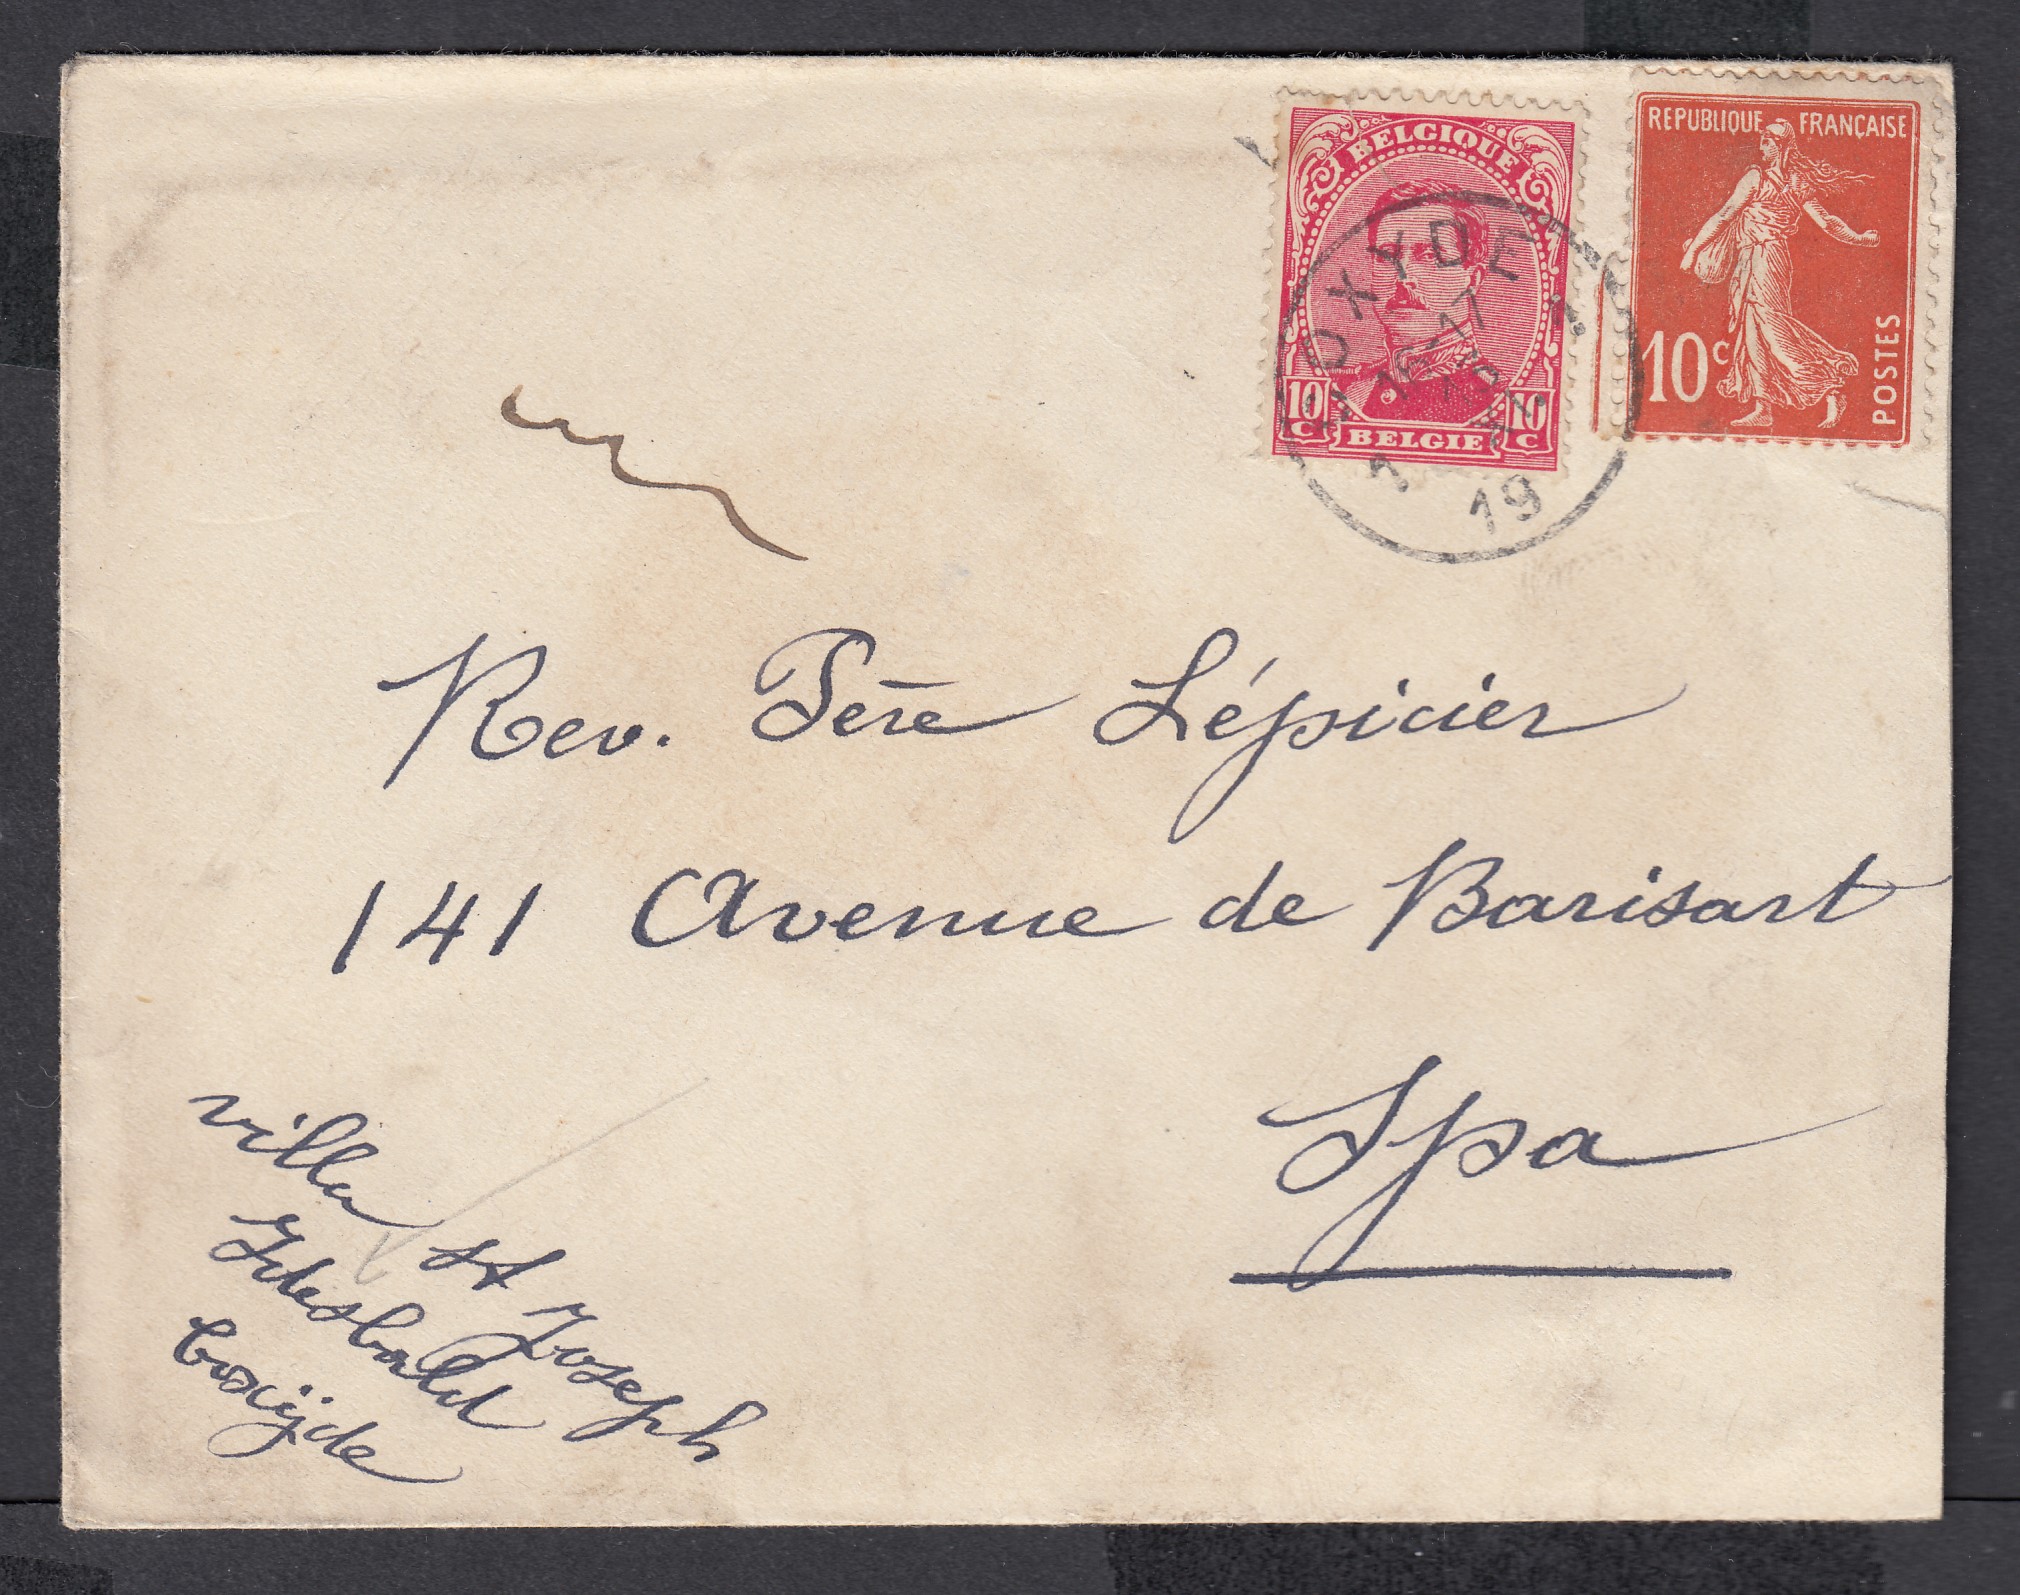 BELGIQUE
10 C 10 C
BELGIE
REPUBLIQUE FRANÇAISE
10 c
POSTES
COXYDE
16-17
19
Rev. Père Lépicier
141 Avenue de Barisart
Spa
Villa St Joseph
Idesbald
Coxÿde